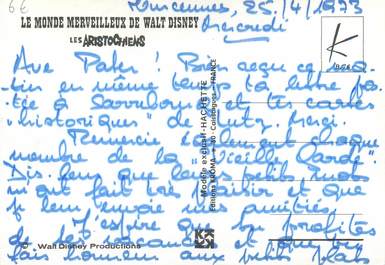 6€
Vincennes, 25/4/1973
LE MONDE MERVEILLEUX DE WALT DISNEY
Mercredi
LES ARISTOCHIENS
K
Ave Pater! Bien reçu ce ma-
tin en même temps ta lettre pos-
tée à Sarrebourg et tes cartes
"historiques" de Lutz. Merci.
Remercie également chaque
membre de la "Vieille Garde".
Dis-leur que leurs petits mots
m'ont fait très plaisir et que
je leur envoie mes amitiés.
J'espère que tu profites
de tes vacances et que tu
fais honneur aux petits plats
Modèle exclusif - HACHETTE
Editions KROMA - FRANCE
© Walt Disney Productions